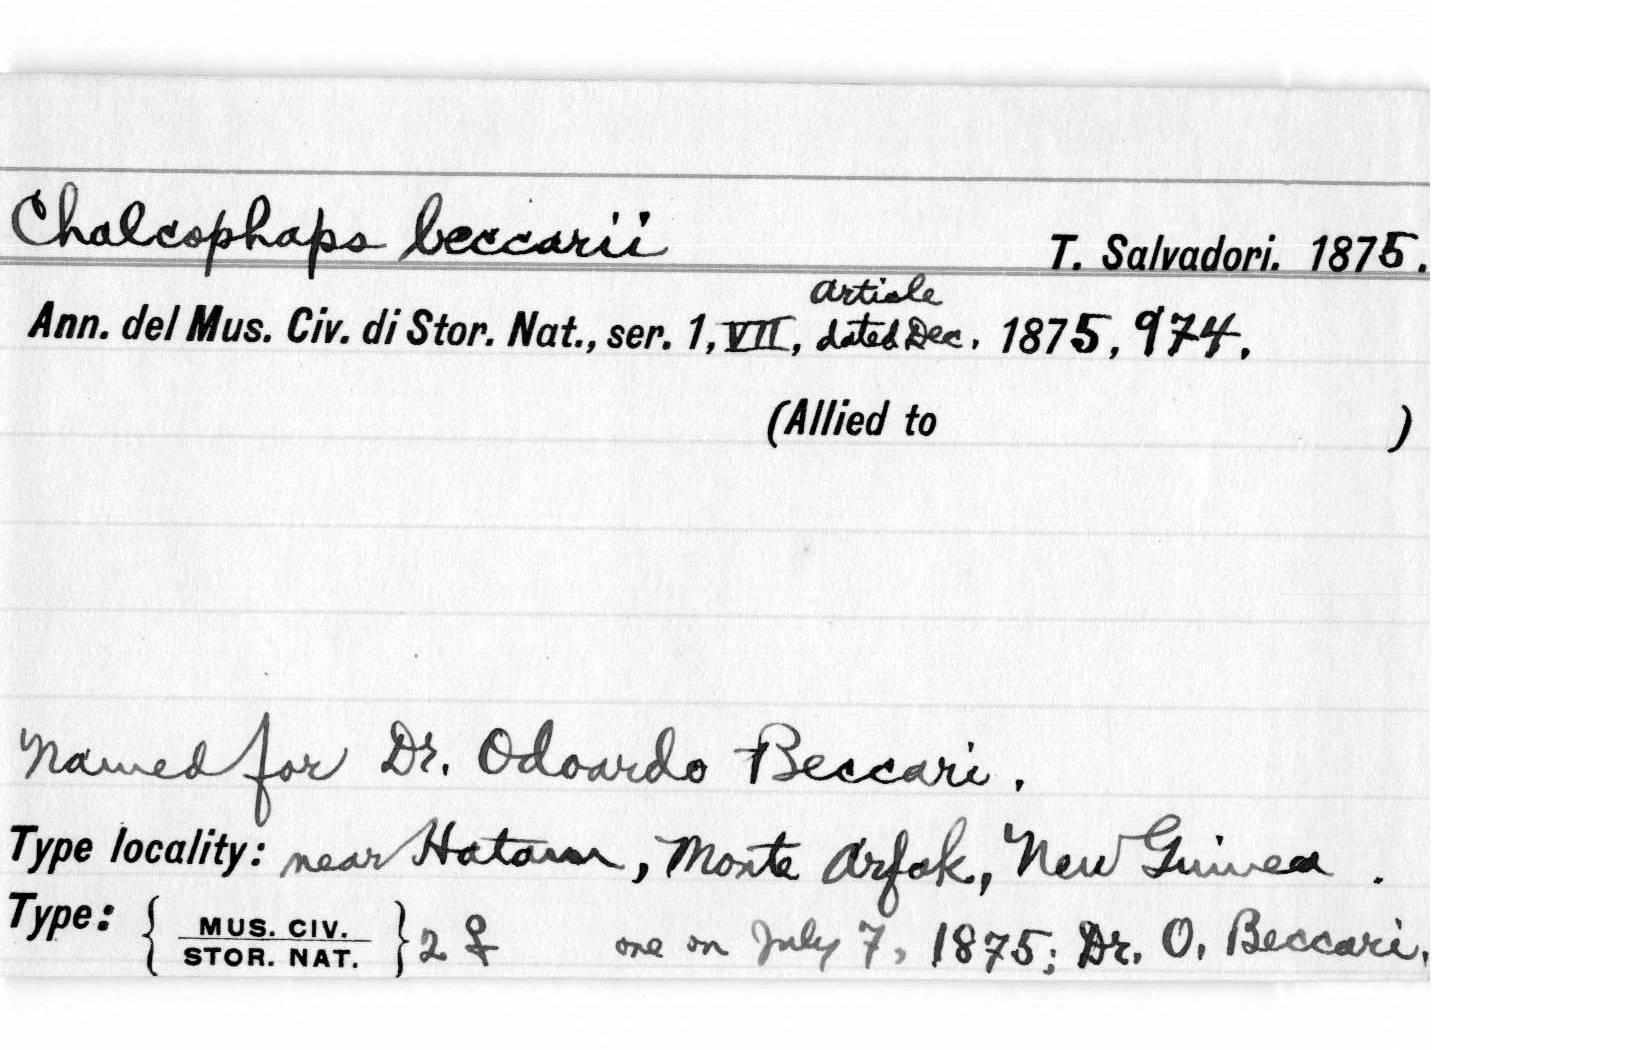 Chalcophaps beccarii T. Salvadori. 1875.
article
Ann. del Mus. Civ. di Stor. Nat., ser. 1, VII, dated Dec. 1875, 974.
(Allied to )
Named for Dr. Odoardo Beccari.
Type locality: near Hatam, Monte Arfak, New Guinea.
Type: { MUS. CIV. } 2 ♀ one on July 7, 1875; Dr. O. Beccari.
STOR. NAT.